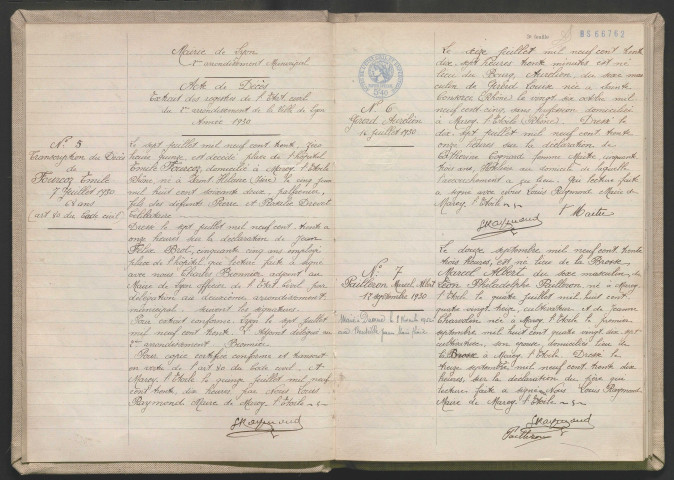 Mairie de Lyon
2e arrondissement Municipal
Acte de Décès
Extrait des registres de l'Etat civil
du 2e arrondissement de la Ville de Lyon
Année 1930
N° 5
Transcription du Décès
de
Fourcy Emile
7 Juillet 1930
68 ans
(art 80 du Code civil)
Le sept juillet mil neuf cent trente,
heures quinze est décédé place de l'hôpital
Emile Fourcy, domicilié à Marcy l'Etoile
Rhône, né à Saint Hélène le cinq juin
mil huit cent soixante deux,
fils des défunts Pierre et Drevet
Célibataire
Dressé le sept juillet mil neuf cent trente à
onze heures sur la déclaration de Jean
Félix Brot, cinquante cinq ans employé
place de l'hôpital, qui lecture faite a signé
avec nous Charles Bronnier adjoint au
Maire de Lyon officier de l'Etat Civil par
délégation au deuxième arrondissement
municipal. suivent les signatures.
Pour extrait conforme Lyon le sept juillet
mil neuf cent trente L'Adjoint délégué au
2e arrondissement Bronnier
Pour copie certifiée conforme et transcrit
en vertu de l'art 80 du code civil. A
Marcy l'Etoile le quinze juillet mil neuf
cent trente, dix heures par nous Louis
Raymond Maire de Marcy l'Etoile
LRaymond
3e feuille
N° 6
Girard Aurélien
16 Juillet 1930
Le seize juillet mil neuf cent trente
dix sept heures trente minutes est né
lieu du Bourg, Aurélien, du sexe mas-
culin de Girard Louise née à Sainte
Consorce (Rhône) le vingt six octobre mil
neuf cent cinq, sans profession domiciliée
à Marcy l'Etoile (Rhône). Dressé le
dix sept juillet mil neuf cent trente
onze heures sur la déclaration de
Catherine femme Martin, cinquante
trois ans,
l'accouchement a eu lieu, qui lecture faite
a signé avec nous Louis Raymond Maire de
Marcy l'Etoile
LRaymond
N° 7
Pailleron Marcel Albert
12 septembre 1930
Le douze septembre mil neuf cent trente
trois heures, est né lieu de la Brosse
Marcel Albert du sexe masculin, de
Léon Philadelphe Pailleron né à Marcy
l'Etoile le quatre juillet mil huit cent
quatre vingt treize, cultivateur et de Jeanne
née à Marcy l'Etoile le premier
septembre mil huit cent quatre vingt dix sept
cultivatrice, son épouse, domiciliés lieu de
la Brosse à Marcy l'Etoile Dressé le
treize septembre mil neuf cent trente dix
heures, sur la déclaration du père qui
lecture faite a signé Nous Louis Raymond
Maire de Marcy l'Etoile
LRaymond
Pailleron